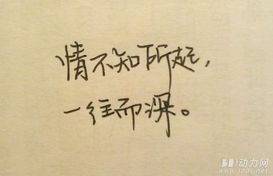 情不知所起，
一往而深。
动力网